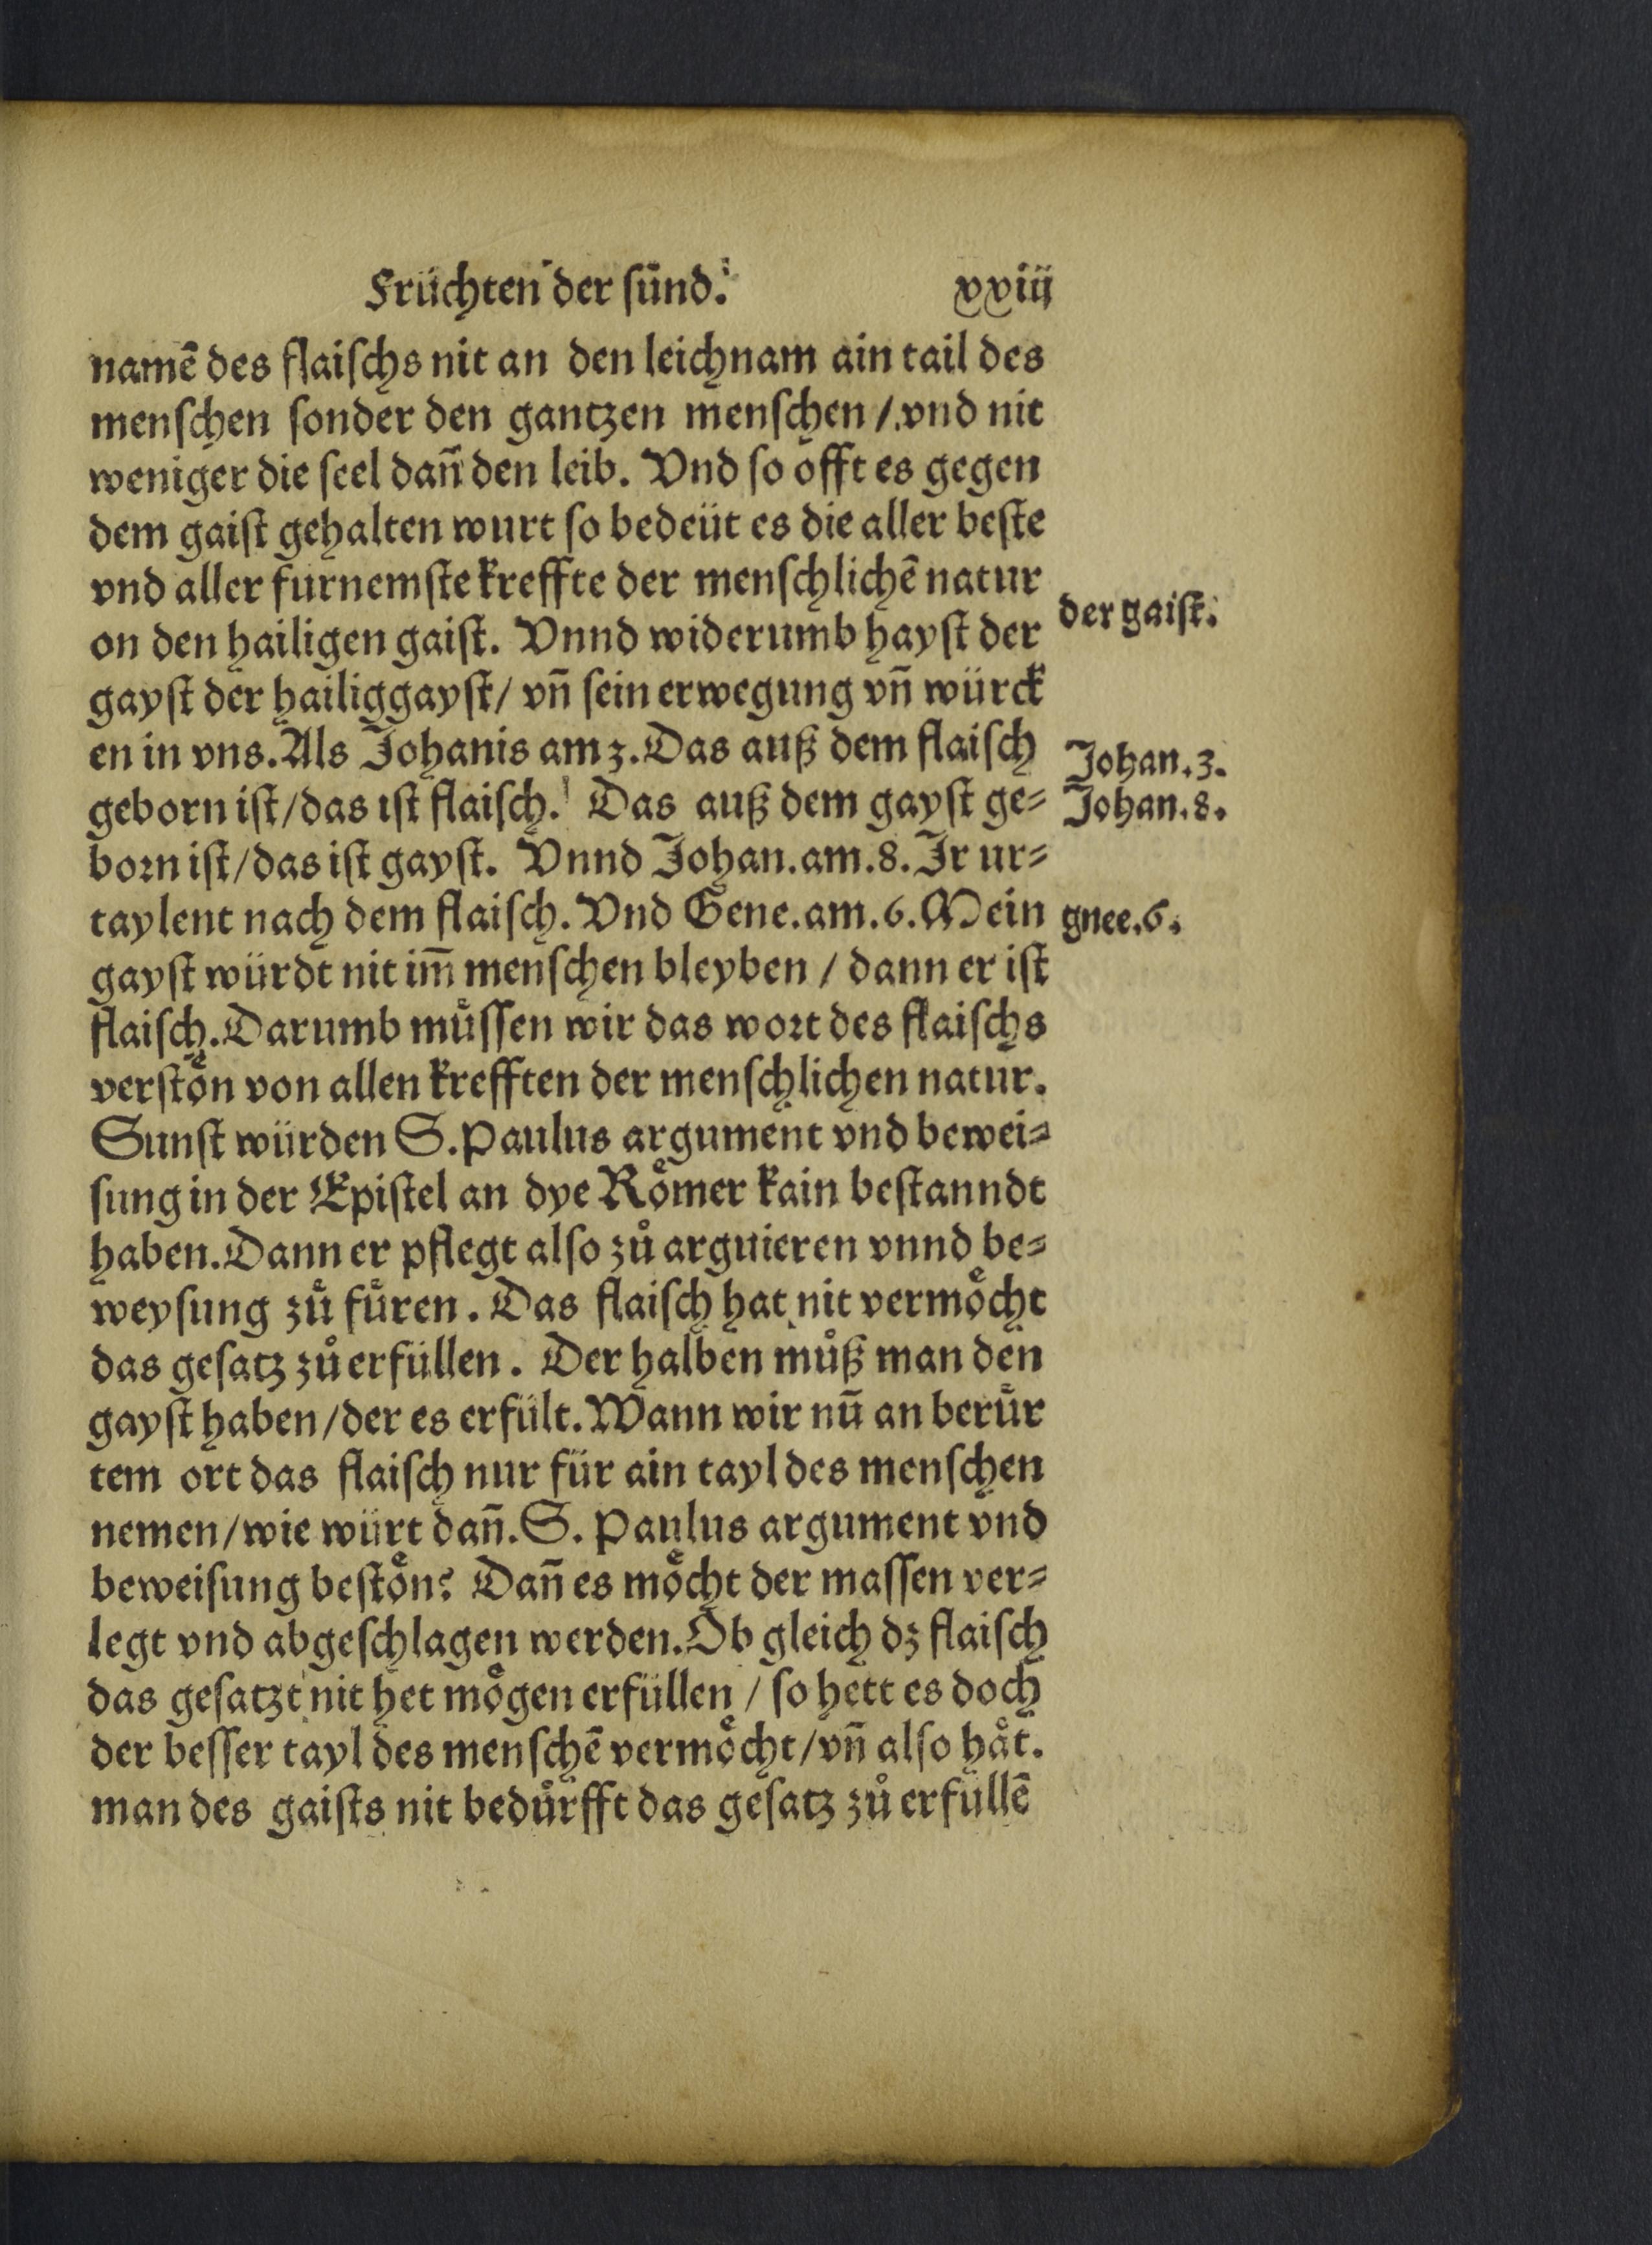 Früchten der sünd.
xxiij
namē des flaiſchs nit an den leichnam ain tail des
menſchen ſonder den gantzen menſchen /.vnd nit
weniger die ſeel dañ den leib. Vnd ſo offt es gegen
dem gaiſt gehalten wurt ſo bedeüt es die aller beſte
vnd aller furnemſte kreffte der menſchlichē natur
der gaiſt.
on den hailigen gaiſt. Vnnd widerumb hayſt der
gayſt der hailiggayſt/ vñ ſein erwegung vñ würck
en in vns. Als Johanis am 3. Das auß dem flaiſch
Johan. 3.
geborn iſt/das iſt flaiſch. Das auß dem gayſt ge⸗
Johan. 8.
born iſt/das iſt gayſt. Vnnd Johan.am.8. Ir ur⸗
taylent nach dem flaiſch. Vnd Gene.am.6. Mein
gnee.6.
gayſt würdt nit im̃ menſchen bleyben / dann er iſt
flaiſch. Darumb muͤſſen wir das wort des flaiſchs
verſtoͤn von allen krefften der menſchlichen natur.
Sunſt würden S. Paulus argument vnd bewei⸗
ſung in der Epiſtel an dye Roͤmer kain beſtanndt
haben. Dann er pflegt alſo zů arguieren vnnd be⸗
weyſung zuͤ fuͤren. Das flaiſch hat nit vermoͤcht
das geſatz zů erfüllen. Der halben můß man den
gayſt haben/der es erfült. Wann wir nū an beruͤr
tem ort das flaiſch nur für ain tayl des menſchen
nemen/wie würt dañ. S. Paulus argument vnd
beweiſung beſtoͤn? Dañ es moͤcht der maſſen ver⸗
legt vnd abgeſchlagen werden. Ob gleich dz flaiſch
das geſatzt nit het moͤgen erfüllen / ſo hett es doch
der beſſer tayl des menſchē vermoͤcht/vñ alſo haͤt.
man des gaiſts nit beduͤrfft das geſatz zů erfüllē